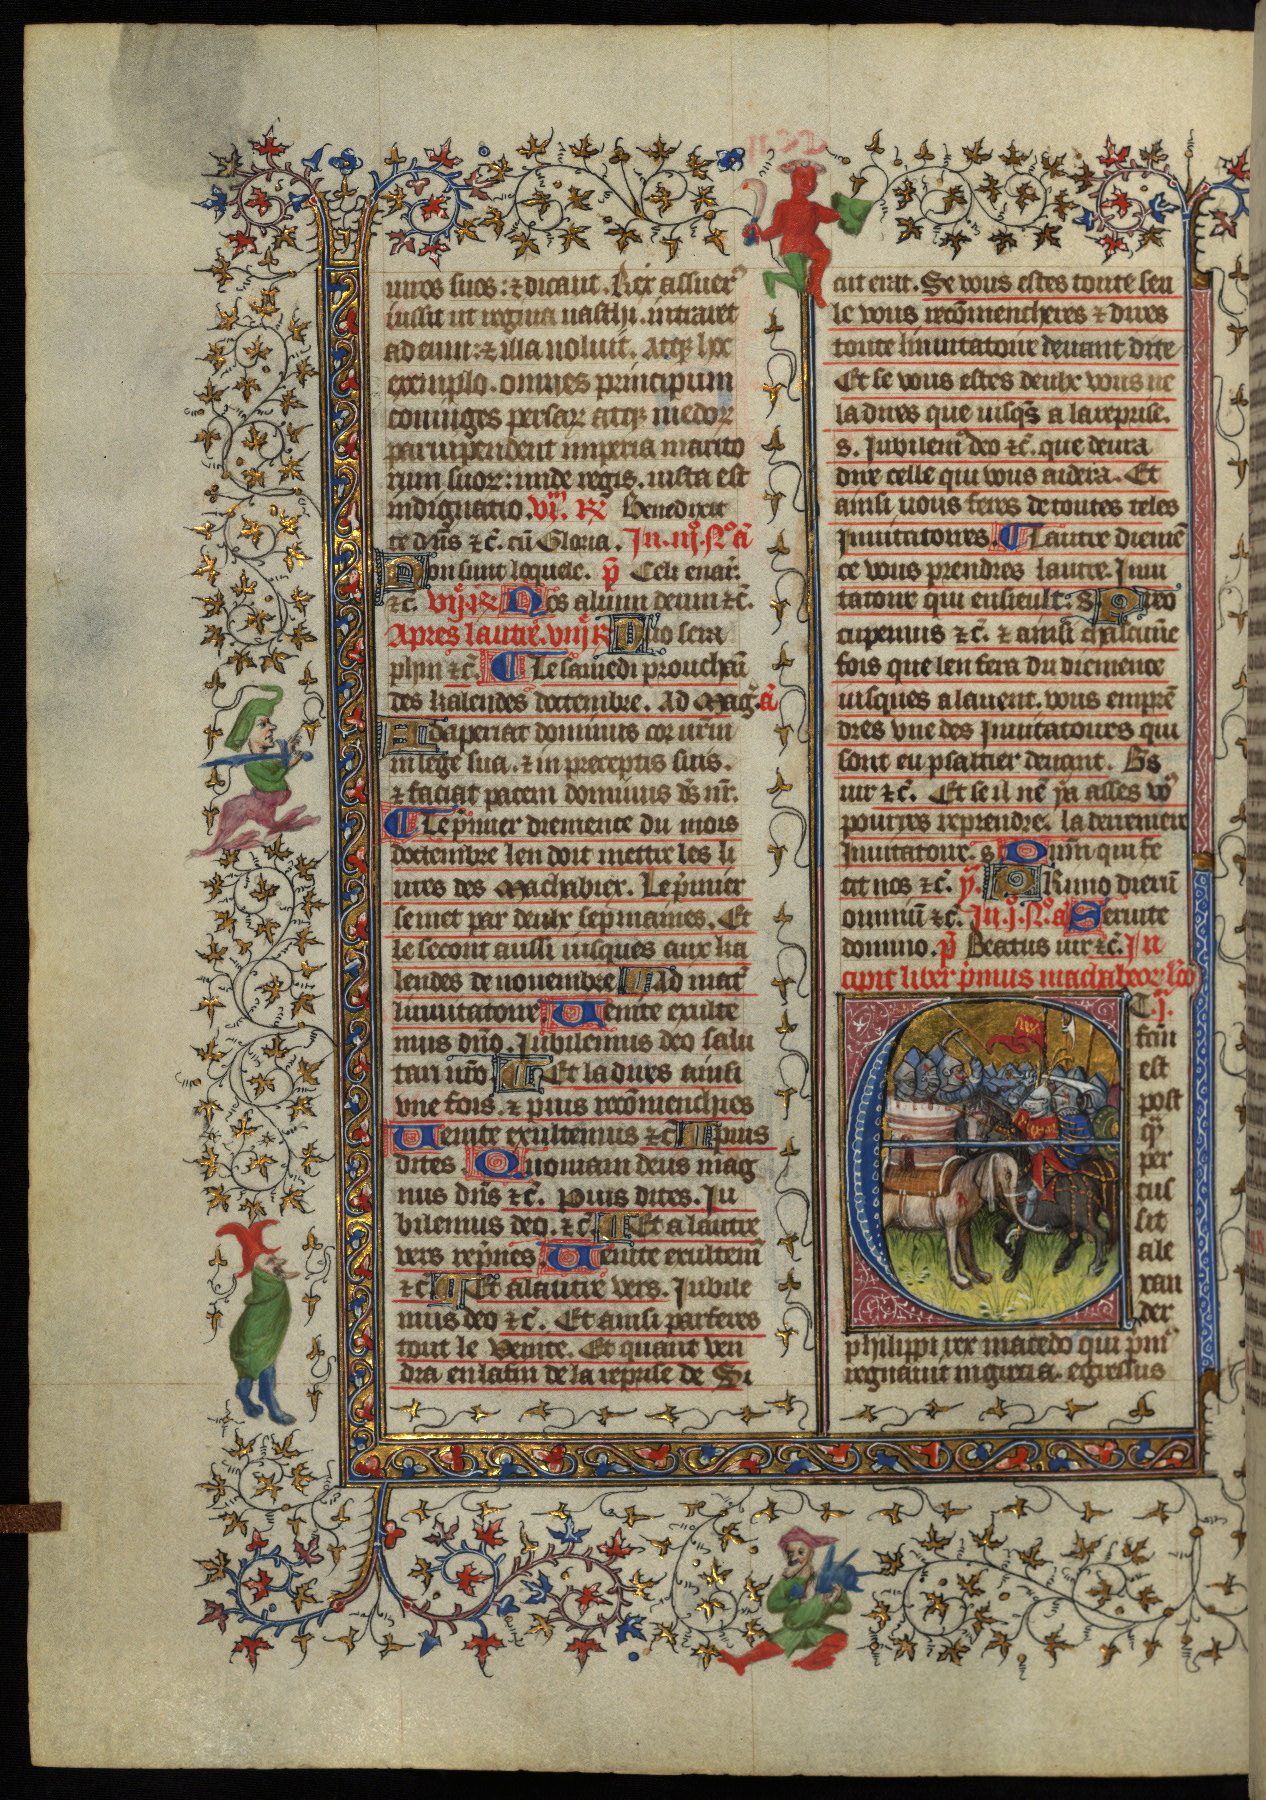 uiros suos: ⁊ dicant. Rex assuer᷒
iussit ut regina uasthi. intraret
ad eum: ⁊ illa noluit. Atq̨ hoc
exemplo. omnes principum
coniuges persarꝝ atq̨ medorꝝ
paruipendent imperia marito
rum suorꝝ: unde regis. iusta est
indignatio. vi. ℟ Benedixit
te dn̄s ⁊c̄. cū Gloria. In. iij. N. a
Non sunt loquele. p̄ Celi enar̄.
⁊c̄. vij. ℟ Nos alium deum ⁊c̄.
Apres lautre. viij ℟ Duo sera
phin ⁊c̄. Le samedi prouchaī
des kalendes doctembre. Ad Maḡ. ā
Adaperiat dominus cor ur̄m
in lege sua. ⁊ in preceptis suis.
⁊ faciat pacem dominus ds̄ nr̄.
Le p̄mier diemence du mois
doctembre len doit mettre les li
ures des Machabiex. Le p̄mier
se met par deulx sepmaines. Et
le secont aussi iusques aux ka
lendes de nouembre Ad mat̄
inuitatoire Uenite exulte
mus dn̄o. Iubilemus deo salu
tari nr̄o Et la dires ainsi
vne fois. ⁊ puis recōmenchies
Uenite exultemus ⁊c̄ puis
dites Quoniam deus mag
nus dn̄s ⁊c̄. Puis dites. Iu
bilemus deo. ⁊c̄ Et a lautre
vers rep̄nes Uenite exultem̄
⁊c̄ Et a lautre vers. Iubile
mus deo ⁊c̄. Et ainsi parferes
tout le Venite. Et quant ven
dra en latin de la reprise de Si
cut erat. Se vous estes toute seu
le vous recōmencheres ⁊ dires
toute linuitatoire deuant dite
Et se vous estes deulx vous ne
la dires que iusqs̄ a la reprise.
s. Iubilem᷒ deo ⁊c̄. que deura
dire celle qui vous aidera. Et
ainsi vous feres de toutes teles
Inuitatoires. Lautre diemē
ce vous prendres lautre. Inui
tatoire qui ensieult: s. Preo
cupemus ⁊c̄. ⁊ ainsi chascune
fois que len fera du diemence
iusques a lauent. vous emprē
dres vne des Inuitatoires qui
sont eu psaltier deuant. Bs̄
uir ⁊c̄. Et se il nē ya asses vo᷒
pourres reprendre. la derreniere
Inuitatoire. s Dnm̄ qui fe
cit nos ⁊c̄ y. Primo dierū
omniū ⁊c̄. In. j. N. a Seruite
domino. p̄ Beatus uir ⁊c̄. In
cipit liber p̄mus machabeorꝝ lc̄o
Et .j.
factū
est
post
q̄
per
cus
sit
ale
xan
der
philippi rex macedo qui p̄m᷒
regnauit in grecia. egressus